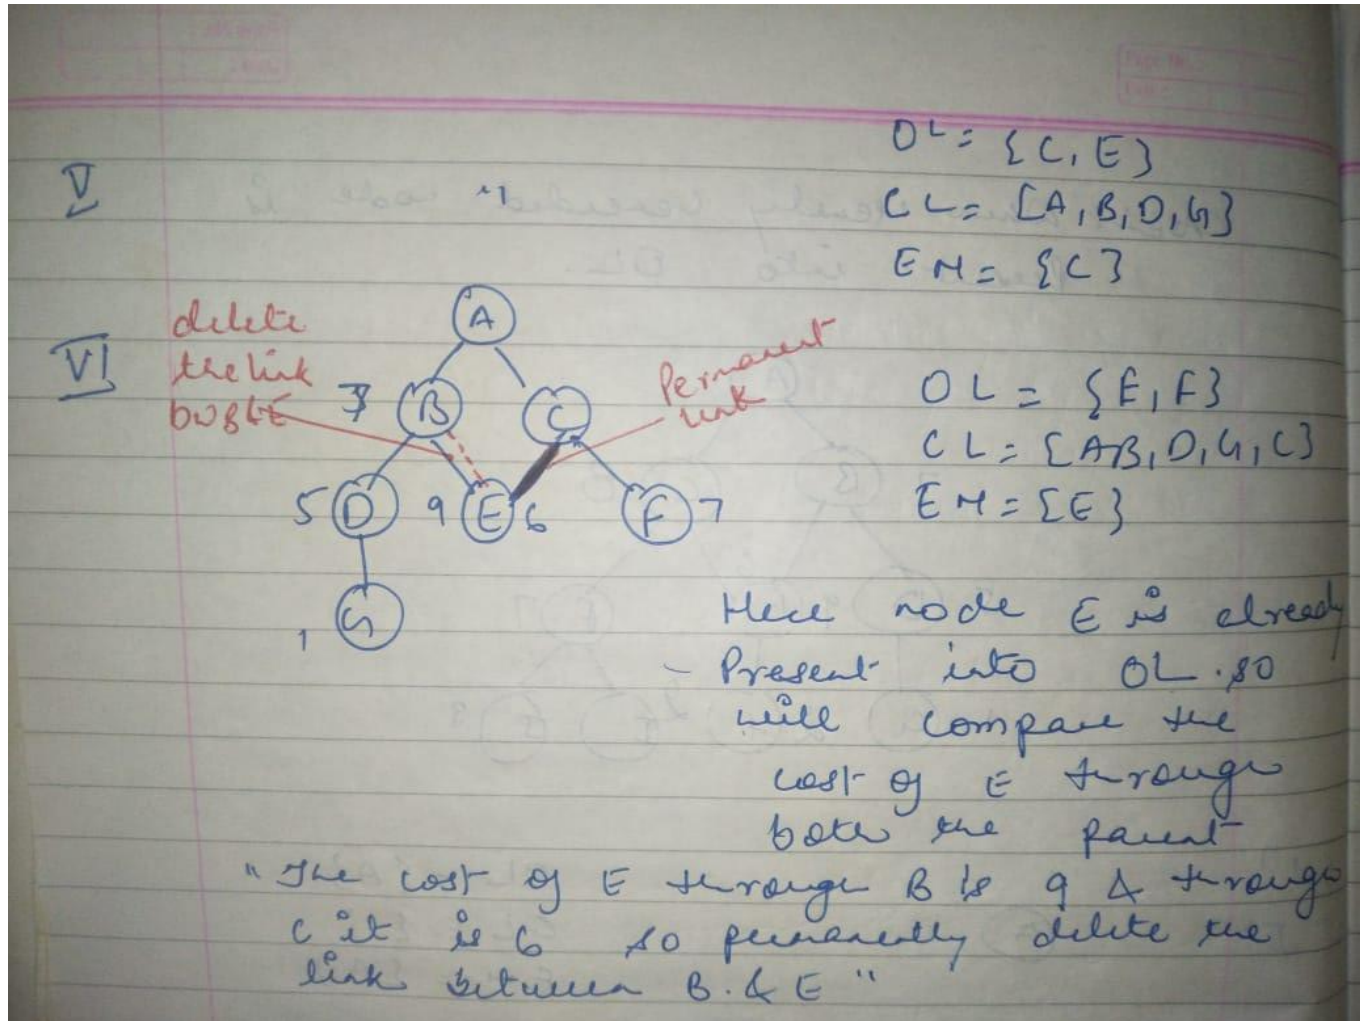 OL = {C, E}
V
CL = {A, B, D, G}
EM = {C}
VI
delete
the link
b/w B & E
Permanent
link
A
3 B C
5 D 9 E 6 F 7
1 G
OL = {E, F}
CL = {A B, D, G, C}
EM = {E}
Here node E is already
- Present into OL. so
will compare the
cost of E through
both the parent
" The cost of E through B is 9 & through
C it is 6 so permanently delete the
link between B. & E "